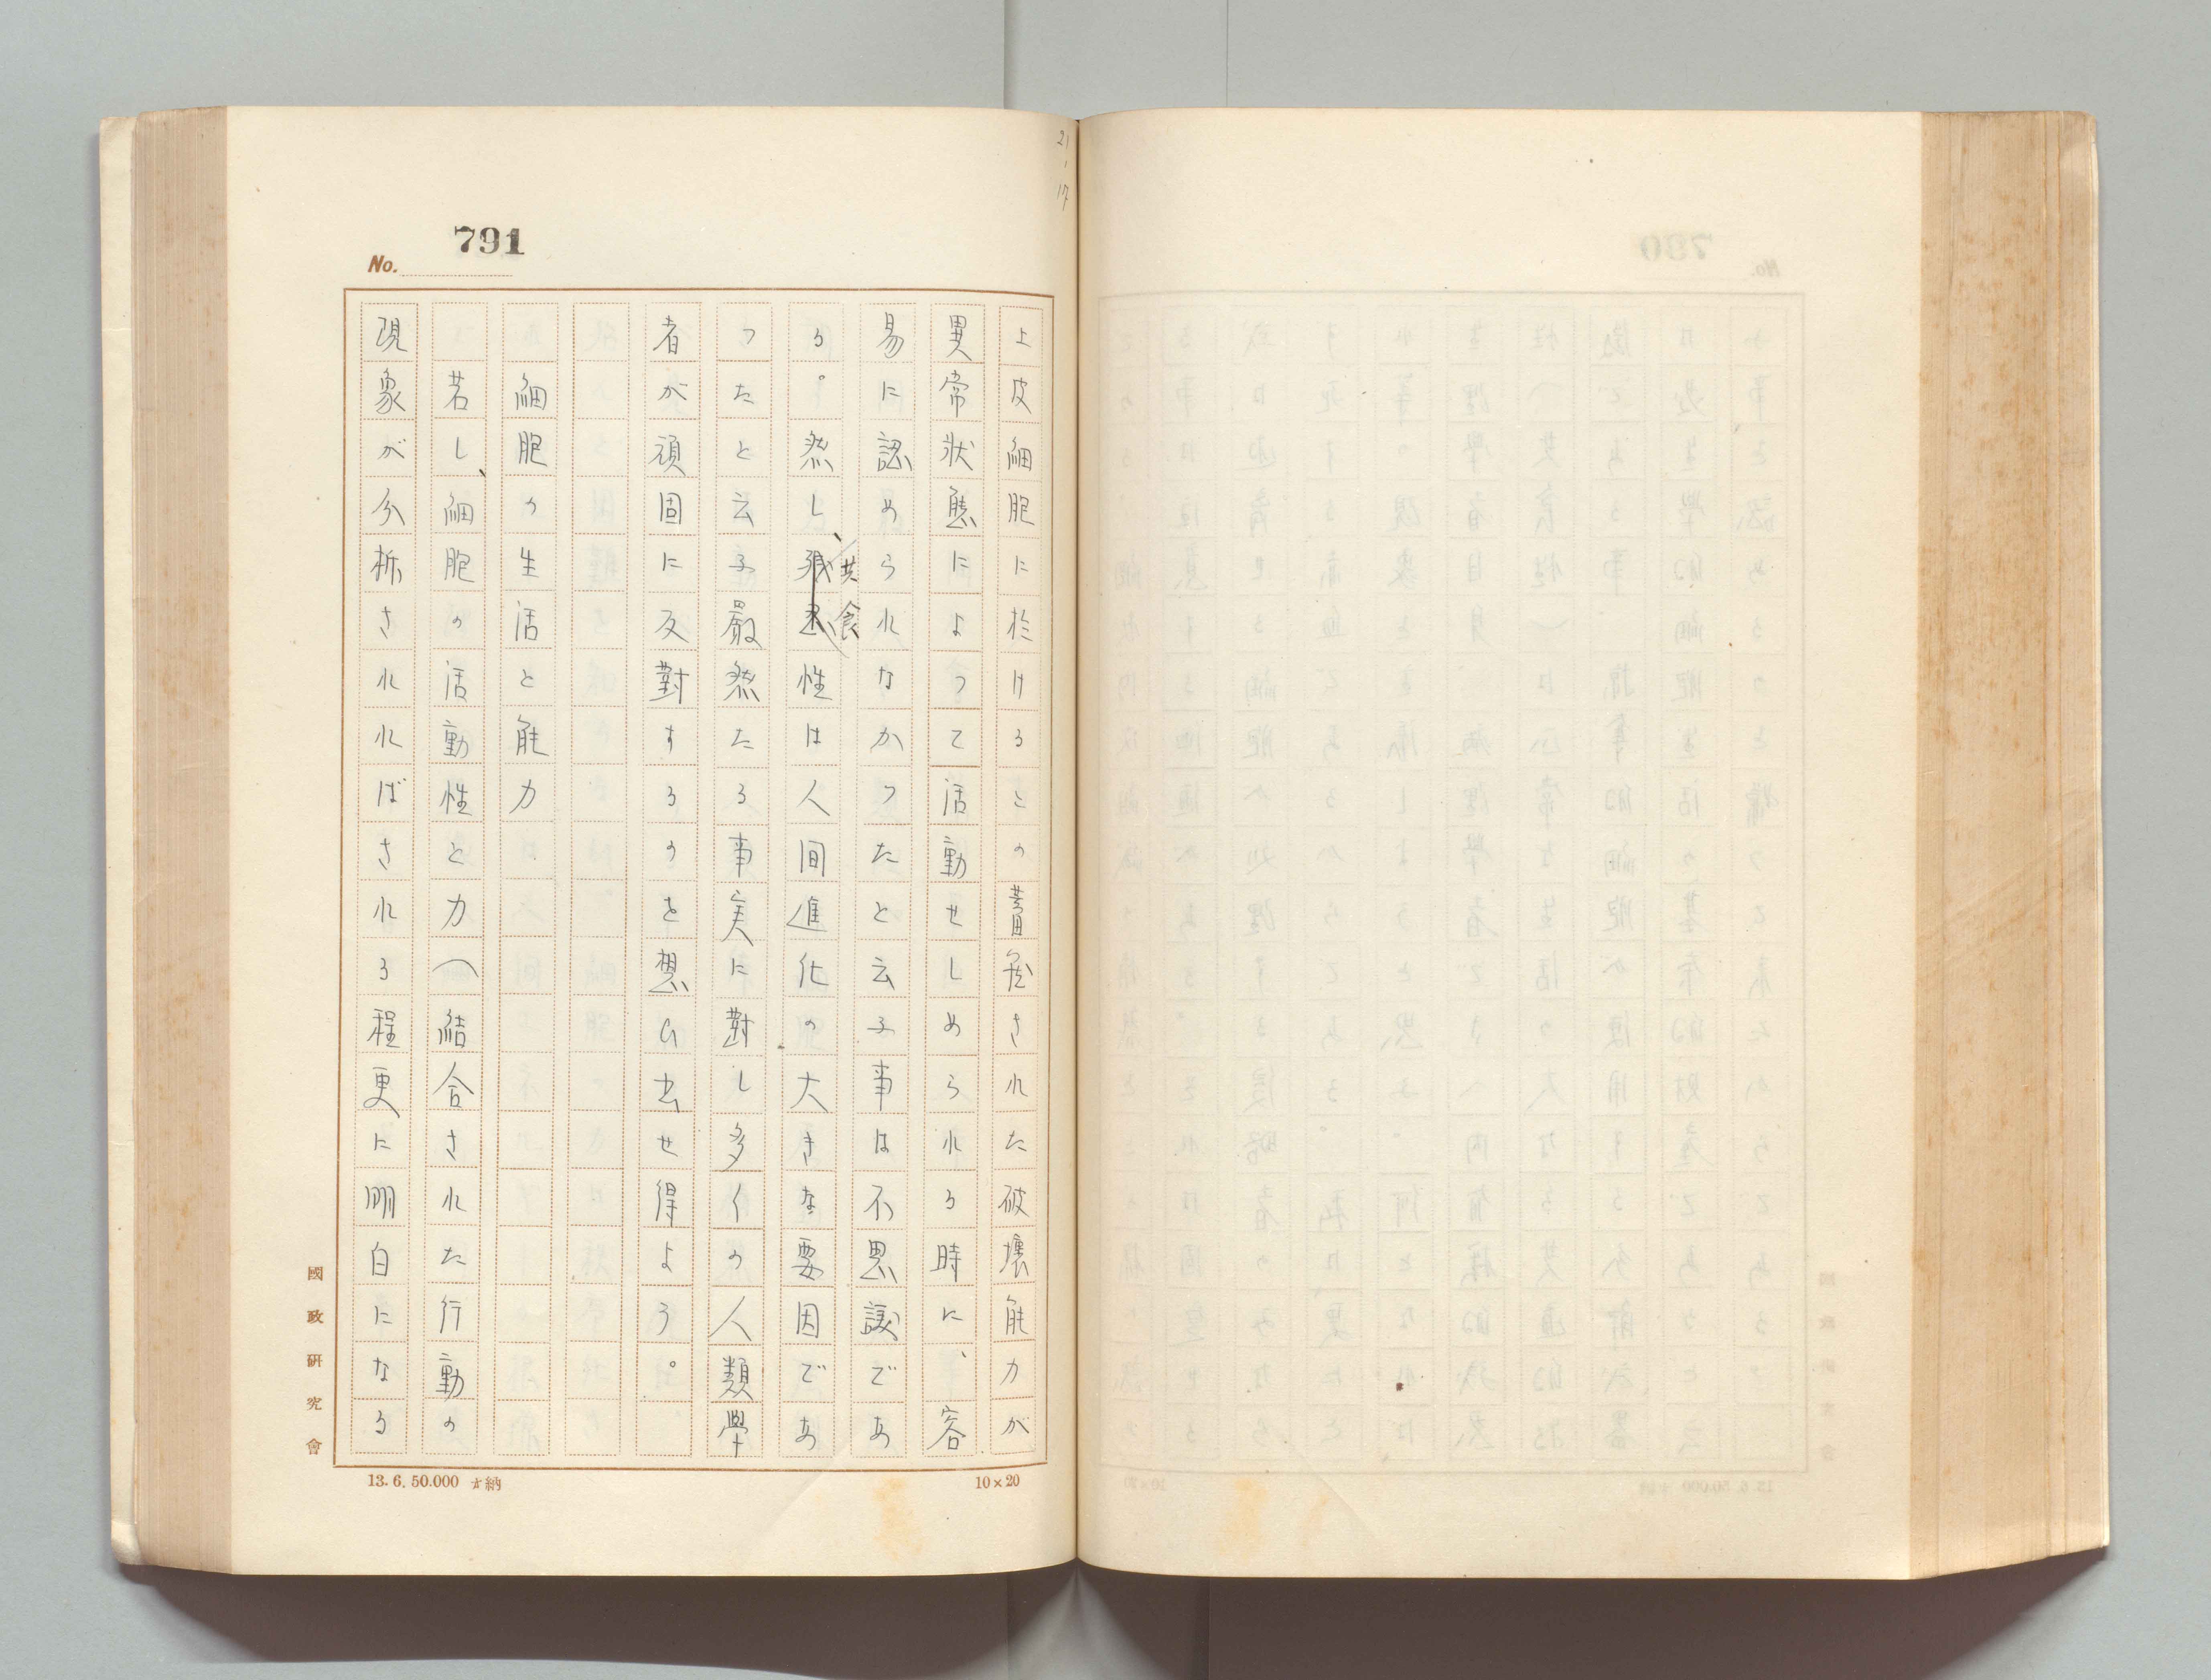 21
17
791
No.
上皮細胞に於けるとの蓄された破壊能力が
異常状態によつて活動せしめられる時に、容
易に認められなかつたと云ふ事は不思議であ
る。然し、共食性は人間進化の大きな要因であ
つたと云ふ嚴然たる事実に對し多くの人類學
者が頑固に反對するのを想ひ出せ得よう。
細胞の生活と能力
若し、細胞の活動性と力(結合された行動の
現象が分析されればされる程更に明白になる
國政研究會
13. 6. 50.000 納
10×20